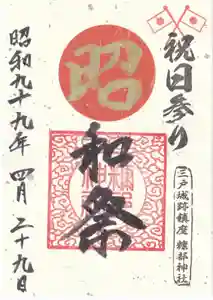 祝日参り
三戸城跡鎮座 糠部神社
昭
和
祭
昭和九十九年 四月 二十九日